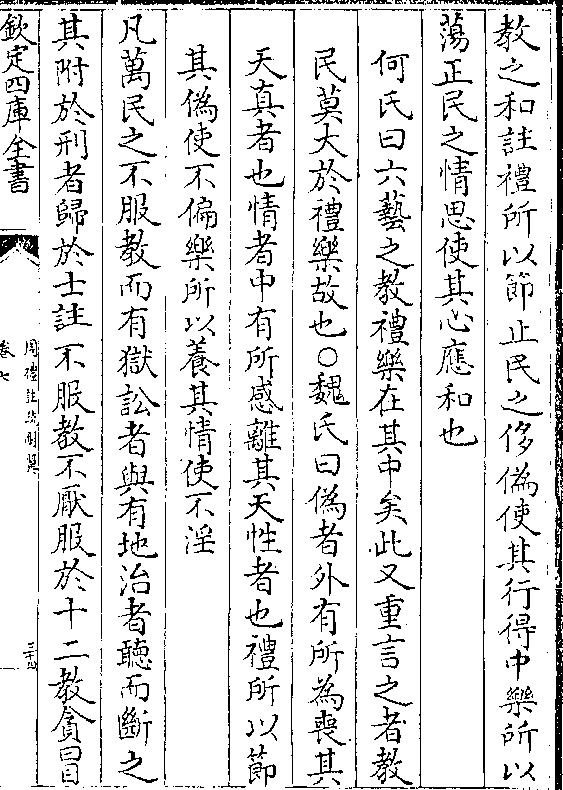 教之和註禮所以節止民之侈偽使其行得中樂所以
蕩正民之情思使其心應和也
何氏曰六藝之教禮樂在其中矣此又重言之者教
民莫大於禮樂故也○魏氏曰偽者外有所為喪其
天真者也情者中有所感離其天性者也禮所以節
其偽使不偏樂所以養其情使不淫
凡萬民之不服教而有獄訟者與有地治者聽而斷之
其附於刑者歸於士註不服教不厭服於十二教貪冒
欽定四庫全書
周禮註疏刪翼
卷七
三十四